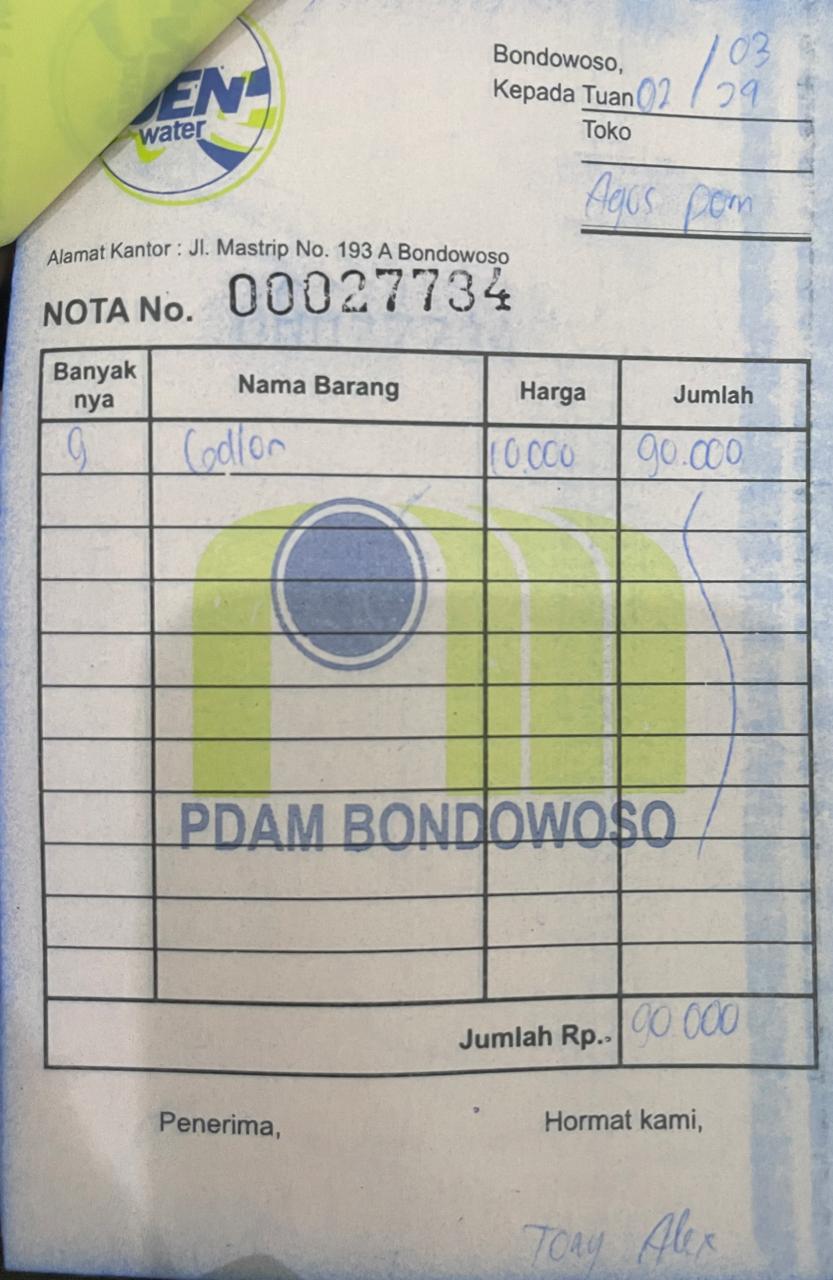 JEN
water
Bondowoso, / 03
Kepada Tuan 02 / 29
Toko
Agus pom
Alamat Kantor : Jl. Mastrip No. 193 A Bondowoso
NOTA No. 00027734
Banyak nya Nama Barang Harga Jumlah
9 Gallon 10.000 90.000
PDAM BONDOWOSO
Jumlah Rp.- 90.000
Penerima, Hormat kami,
Tony Alex